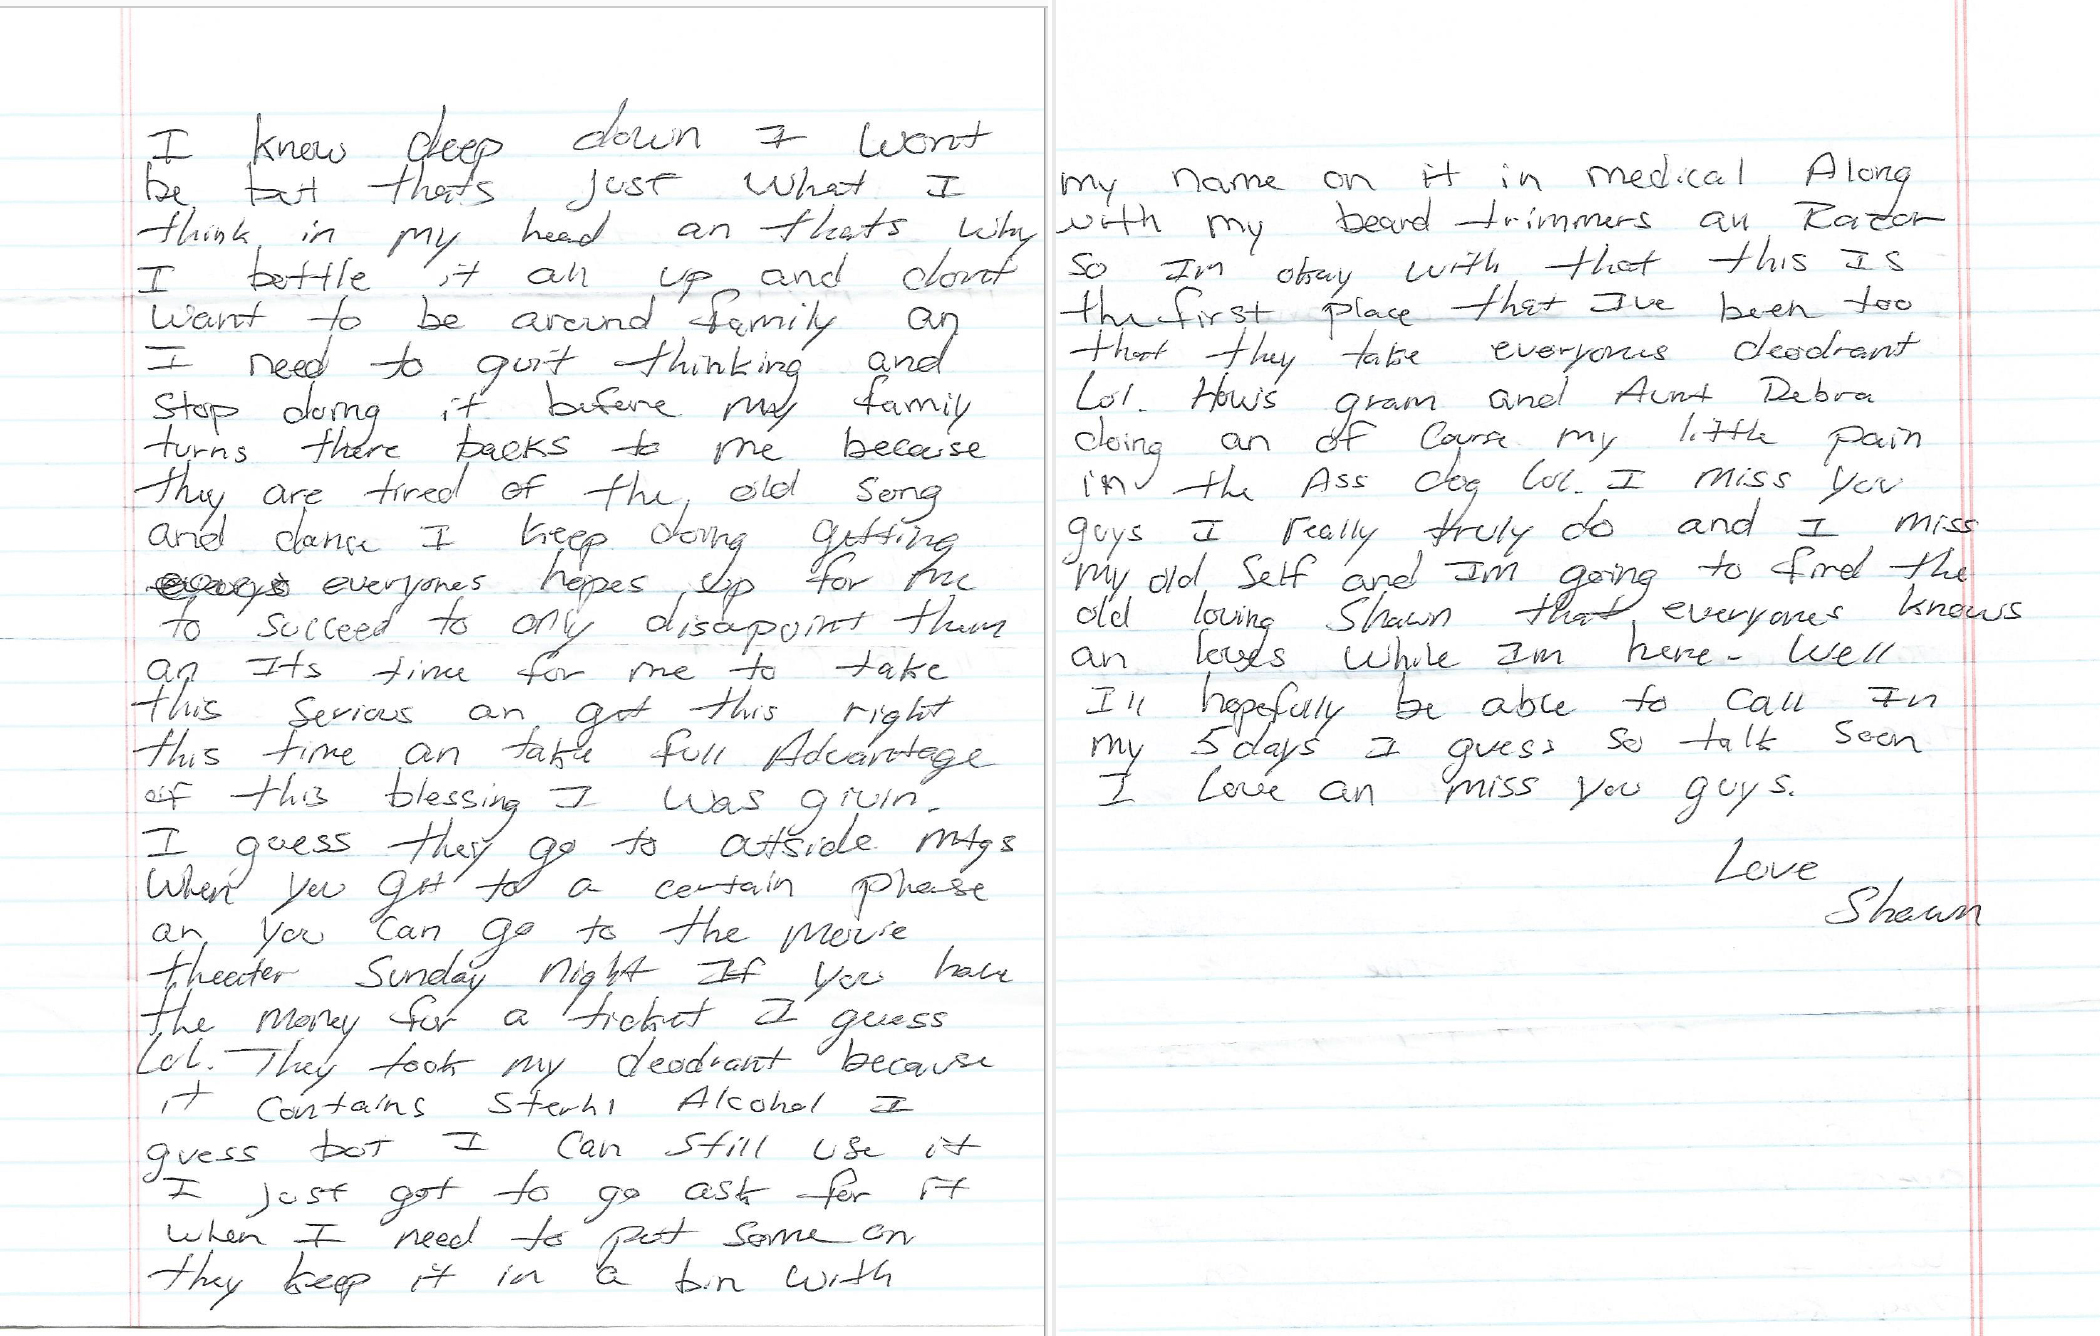 I know deep down I wont
be but thats just what I
think in my head an thats why
I bottle it all up and dont
want to be around family an
I need to quit thinking and
stop doing it before my family
turns there backs to me because
they are tired of the old song
and dance I keep doing getting
everyones hopes up for me
to succeed to only disapoint them
an Its time for me to take
this serious an get this right
this time an take full Advantage
of this blessing I was givin.
I guess they go to outside mtgs
when you get to a certain phase
an you can go to the movie
theater Sunday night If you have
the money for a ticket I guess
Lol. They took my deodrant because
it contains Sterhl Alcohol I
guess but I can still use it
I just got to go ask for it
when I need to put some on
they keep it in a bin with
my name on it in medical Along
with my beard trimmers an Razor
so Im okay with that this Is
the first place that I've been too
that they take everyones deodrant
Lol. How's gram and Aunt Debra
doing an of course my little pain
in the Ass dog lol. I miss you
guys I really truly do and I miss
my old self and Im going to find the
old loving Shawn that everyones knows
an loves while Im here. Well
I'll hopefully be able to call In
my 5 days I guess so talk soon
I love an miss you guys.
Love
Shawn